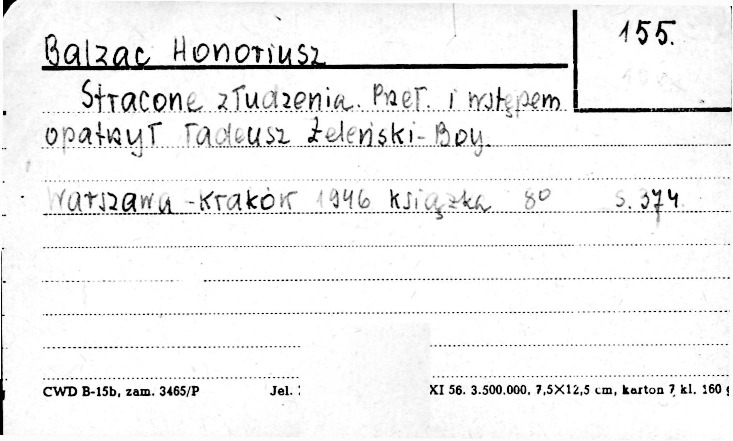 155.
Balzac Honoriusz
Stracone złudzenia. Przeł. i wstępem
opatrzył Tadeusz Żeleński-Boy.
Warszawa-Kraków 1946 Książka 8° s. 374
CWD B-15b, zam. 3465/P Jel. XI 56. 3.500.000. 7,5×12,5 cm, karton 7 kl. 160 g